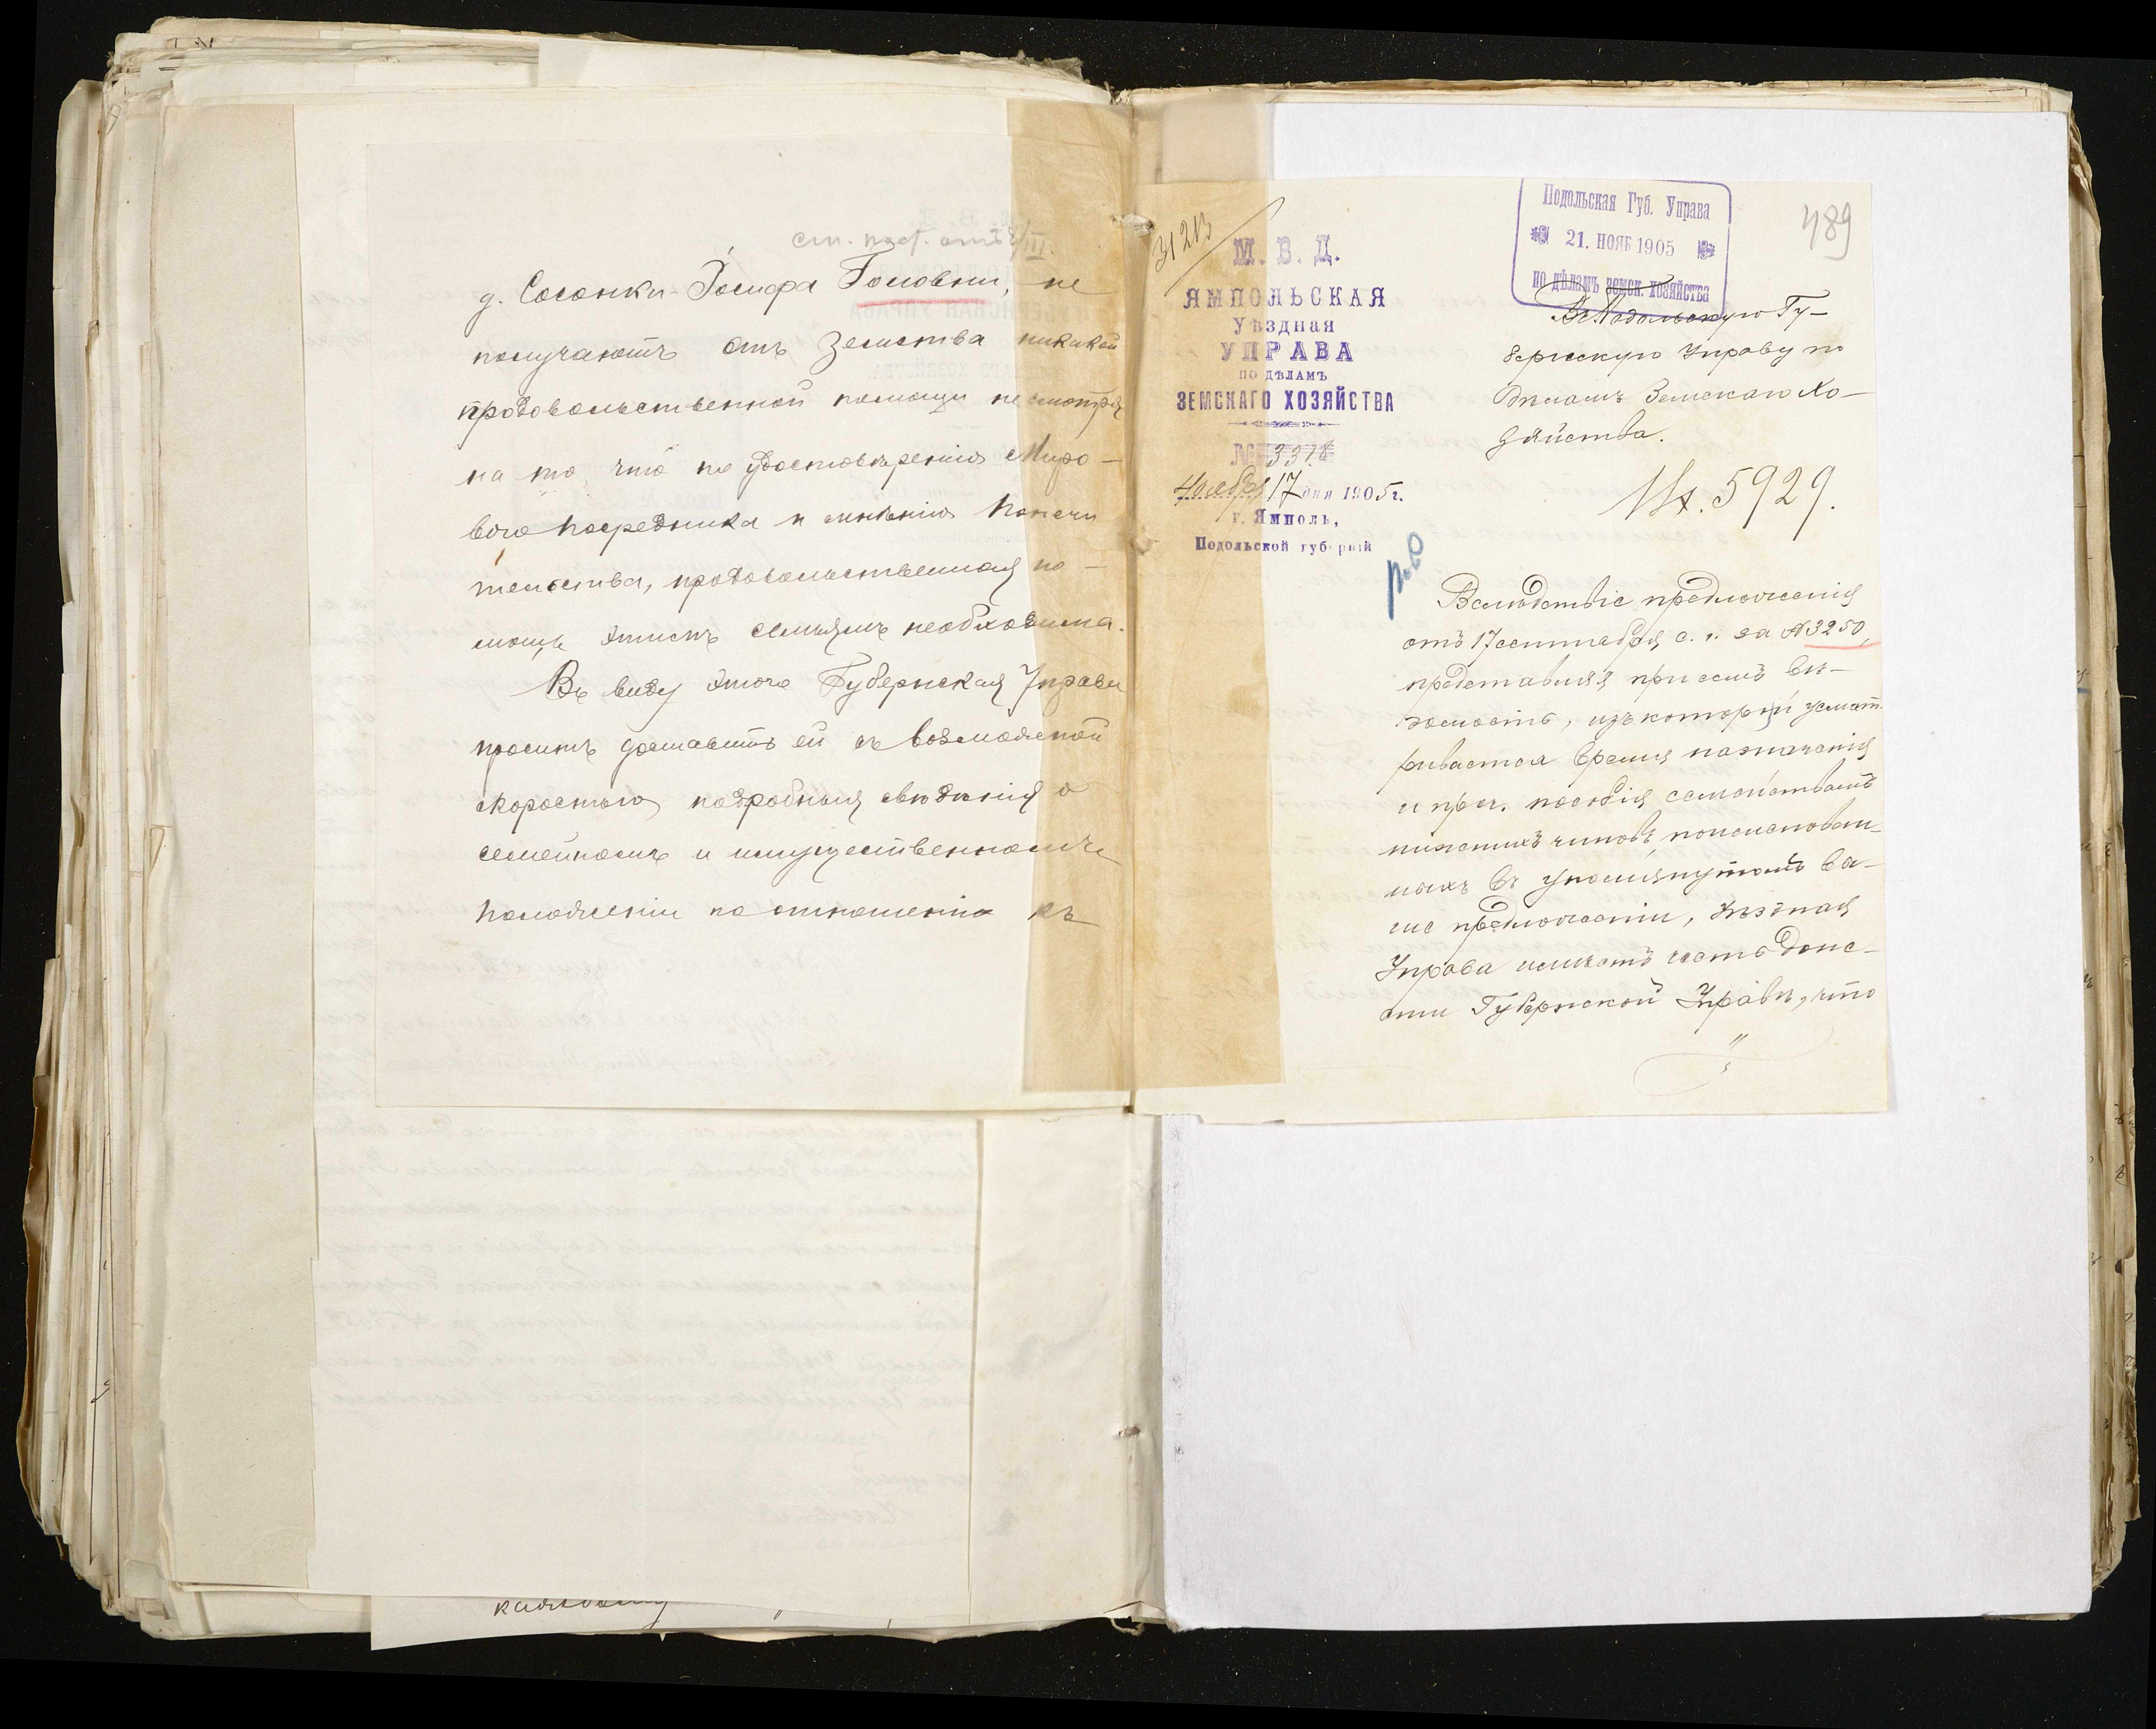 см. пред. отъ
д. Сосонки - Іосифа Головни, не
получаютъ отъ Земства никакой
продовольственной помощи несмотря
на то, что по удостовѣренію Миро-
вого Посредника и мнѣнію Попечи
тельства, продовольственная по-
мощь этимъ семьямъ необходима.
Въ виду этого Губернская Управа
проситъ доставить ей съ возможной
скоростью подробныя свѣдѣнія о
семейномъ и имущественномъ
положеніи по отношенію къ
31213
М. В. Д.
ЯМПОЛЬСКАЯ
Уѣздная
УПРАВА
ПО ДѢЛАМЪ
ЗЕМСКАГО ХОЗЯЙСТВА
№ 3376
Ноября 17 дня 1905 г.
г. Ямполь,
Подольской губерніи
Подольская Губ. Управа
21. НОЯБ 1905
по дѣламъ земск. хозяйства
489
Въ Подольскую Гу-
бернскую Управу по
дѣламъ Земскаго Хо-
зяйства.
5929.
Вслѣдствіе предложенія
отъ 17 сентября с. г. за № 3250,
представляя при семъ вѣ-
домость, изъ которой усмат-
ривается время назначенія
и проч. пособія семействамъ
нижнихъ чиновъ, поименован-
ныхъ въ упомянутомъ ва-
ше предложеніи, Уѣздная
Управа имѣетъ честь доне-
сти Губернской Управѣ, что